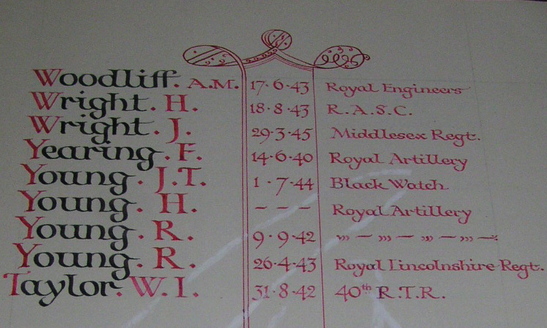 Woodliff. A.M. 17·6·43 Royal Engineers
Wright. H. 18·8·43 R.A.S.C.
Wright. J. 29·3·45 Middlesex Regt.
Yearing. F. 14·6·40 Royal Artillery
Young. J.T. 1·7·44 Black Watch
Young. H. – – – Royal Artillery
Young. R. 9·9·42 ,,, — ,,, — ,,, — ,,, —
Young. R. 26·4·43 Royal Lincolnshire Regt.
Taylor. W.I. 31·8·42 40th R.T.R.